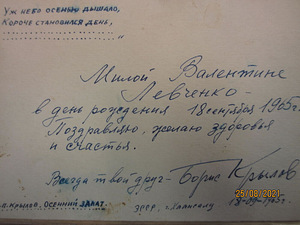 Уж небо осенью дышало,
Короче становился день,
"
Милой Валентине
Левченко –
в день рождения 18 сентября 1965 г.
Поздравляю, желаю здоровья
и счастья.
Всегда твой друг – Борис Крылов
Б. Крылов, Осенний закат.
ЭРСР, г.
25/08/2021
18-09-1965 г.